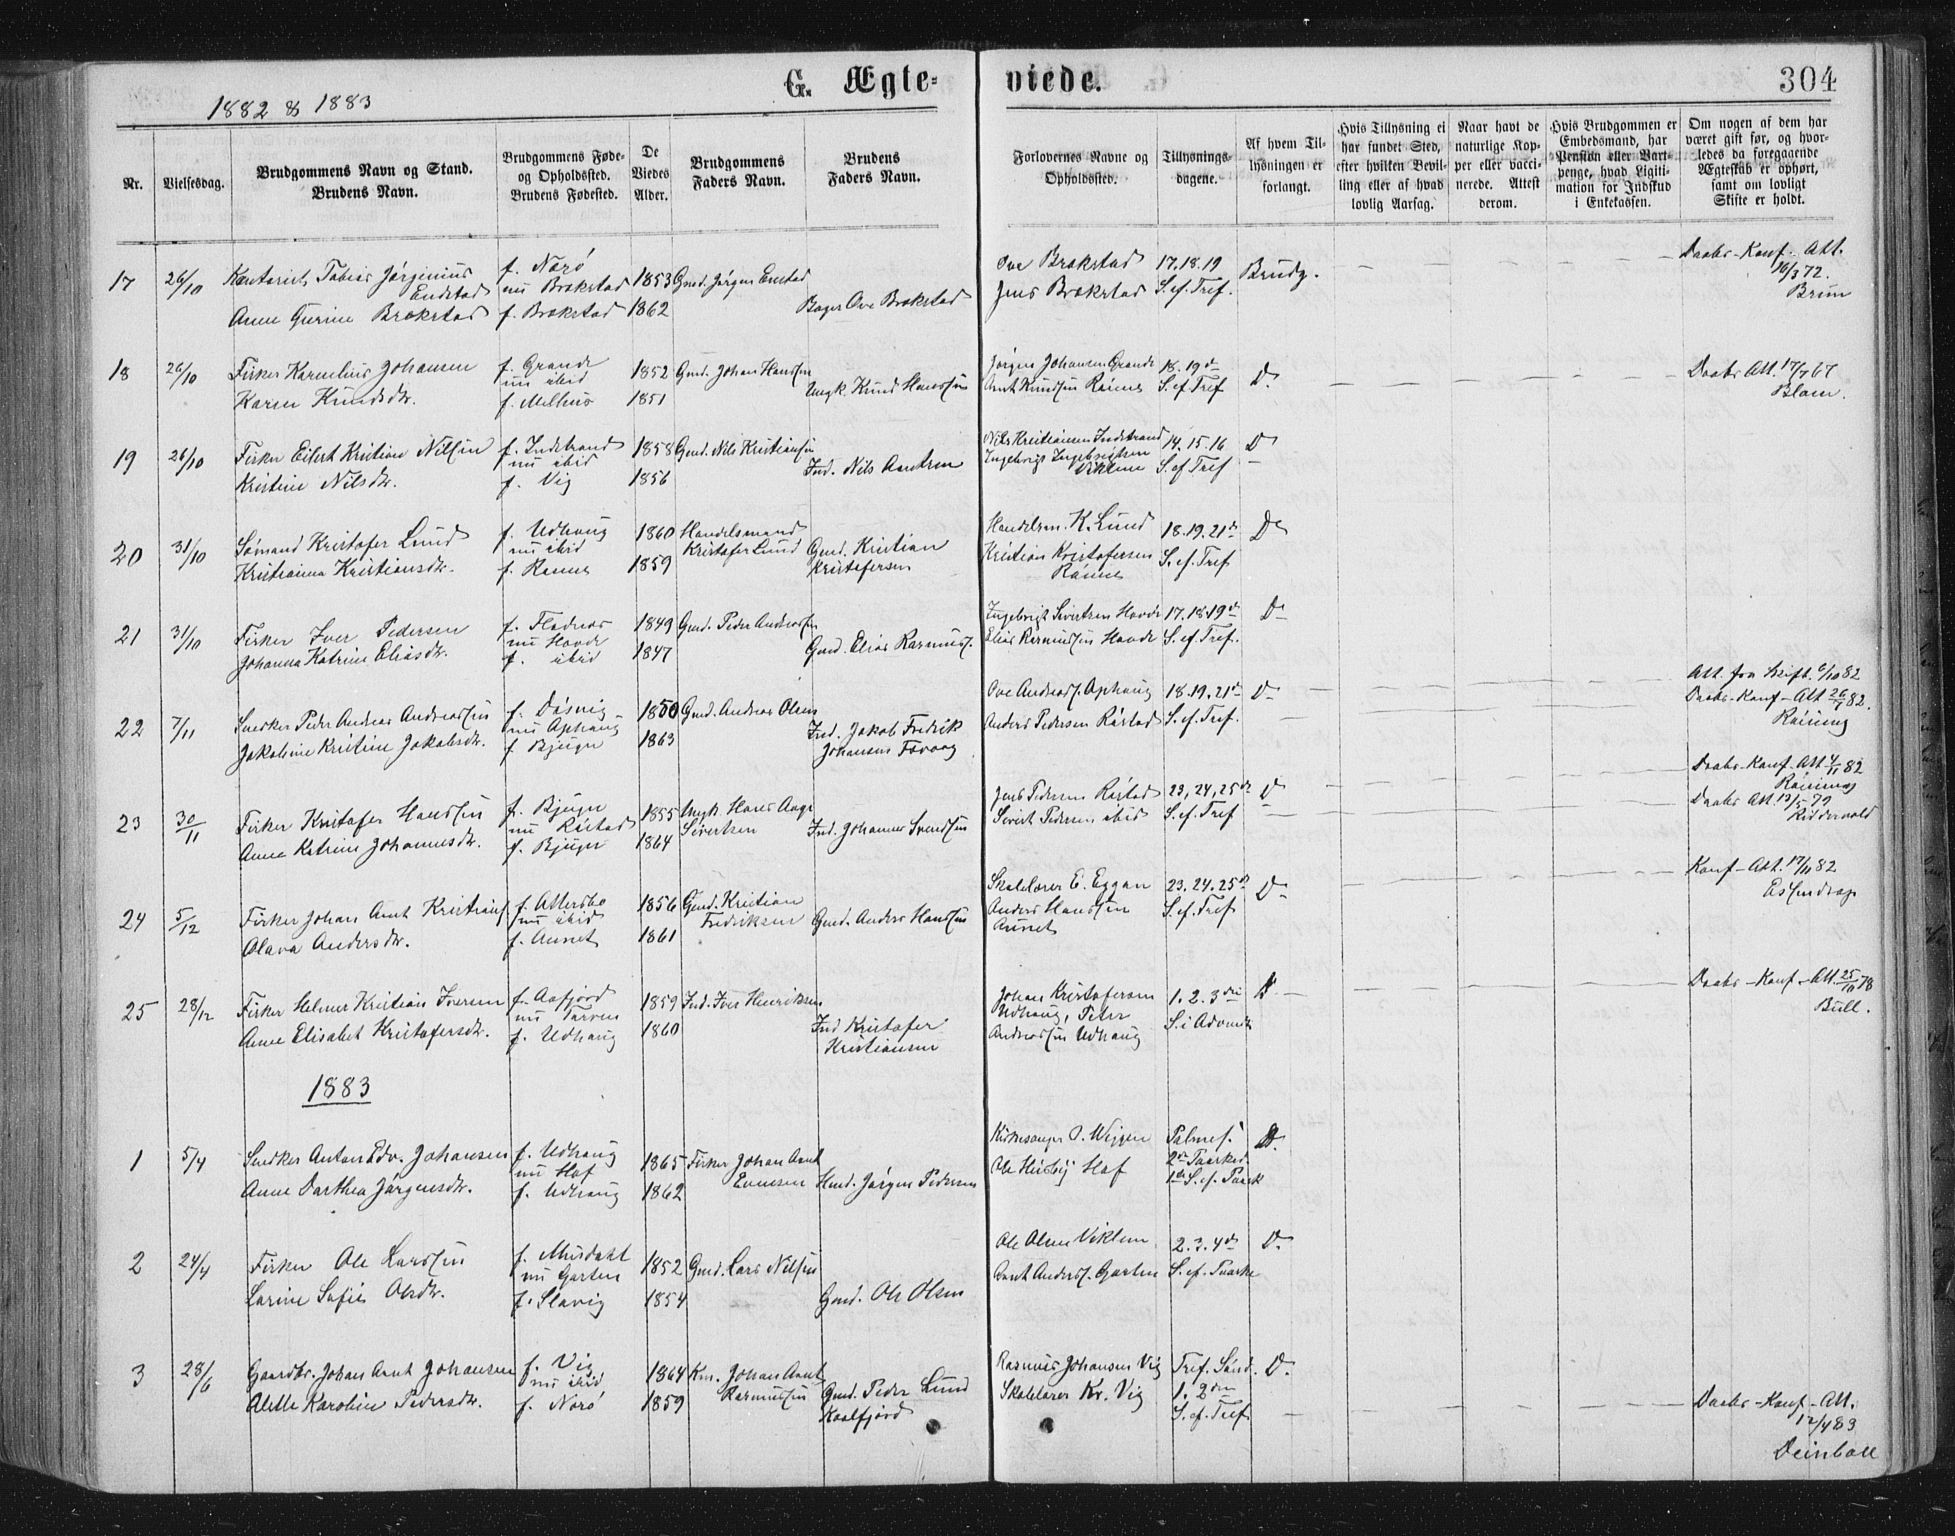 G. Ægte-
viede.
304
1882 & 1883
Nr.
Vielsesdag.
Brudgommens Navn og Stand.
Brudens Navn.
Brudgommens Føde-
og Opholdssted.
Brudens Fødested.
De
Viedes
Alder.
Brudgommens
Faders Navn.
Brudens
Faders Navn.
Forlovernes Navne og
Opholdssted.
Tillysnings-
dagene.
Af hvem Til-
lysningen er
forlangt.
Hvis Tillysning ei
har fundet Sted,
efter hvilken Bevil-
ling eller af hvad
lovlig Aarsag.
Naar havt de
naturlige Kop-
per eller vacci-
nerede. Attest
derom.
Hvis Brudgommen er
Embedsmand, har
Pension eller Vart-
penge, hvad Ligiti-
mation for Indskud
i Enkekassen.
Om nogen af dem har
været gift før, og hvor-
ledes da foregaaende
Ægteskab er ophørt,
samt om lovligt
Skifte er holdt.
17 26/10 Tobias Jørginius
Endstad
Anne Gurine Brakstad
f. Norø
nu Brakstad
f. Brakstad
1853
1862
Gmd. Jørgen Enstad
Ove Brakstad
Ove Brakstad
Jens Brakstad
17.18.19
S. ef. Tref.
Brudg.
Daabs-Konf-Att.
16/3 72.
Brun
18 26/10 Fisker Kornelius Johansen
Karen Knudsdtr.
f. Grande
nu ibid
f. Melhus
1852
1851
Gmd. Johan Hansen
Ungk. Knud Hansen
Jørgen Johansen Grande
Arnt Knudsen
18.19de
S. ef. Tref
Do
Daabs Att.
Blom.
19 26/10 Fisker Eilert Kristian Nilsen
Kristine Nilsdtr.
f. Indstrand
nu ibid
f. Vig
1858
1856
Gmd. Nils Kristiansen
Ind. Nils Arntsen
Nils Kristiansen Indstrand
Ingebrigt Ingebrigtsen
Viklem
14.15.16
S. ef. Tref
Do
20 31/10 Sømand Kristofer Lund
Kristianna Kristiansdtr.
f. Udhaug
nu ibid
1860
1859
Handelsmand
Kristofer Lund
Gmd. Kristian
Kristofersen
Handelsm. K. Lund
Kristian Kristofersen
18.19.21de
S. ef. Tref
Do
21 31/10 Fisker Iver Pedersen
Johanna Katrine Eliasdtr.
f. Fladnes
nu Hovde
f. ibid
1849
1847
Gmd. Peder Andersen
Gmd. Elias Rasmuss.
Ingebrigt Sivertsen Hovde
Elias Rasmussen Hovde
17.18.19de
S. ef. Tref.
Do
22 7/11 Snedker Peder Andreas Andreassen
Jakobine Kristine Jakobsdtr.
f. Døsvig
nu Ophaug
f. Bjugn
1850
1863
Gmd. Andreas Olsen
Ind. Jakob Fredrik
Johansen
Ove Andreass. Ophaug
Anders Pedersen Røstad
18.19.21de
S. ef. Tref.
Do
Daabs-Konf-Att
23 30/11 Fisker Kristofer Hansen
Anne Katrine Johannesdtr.
f. Bjugn
nu Røstad
f. Bjugn
1855
1864
Sivertsen
Ind. Johannes Svendsen
Jens Pedersen Røstad
Sivert Pedersen ibid
23,24,25de
S. ef. Tref
Do
Daabs-Konf-Att 4/11 82
Daabs Att.
Riddervold
24 5/12 Fisker Johan Arnt Kristians.
Olava Andersdtr.
nu ibid
f. Aunet
1856
1861
Gmd. Kristian
Fredriksen
Gmd. Anders Hansen
Skolelærer E. Eggan
Anders Hansen
Aunet
23.24.25de
S. ef. Tref
Do
Konf-Att. 17/11 82
25 28/12 Fisker Helmer Kristian Iversen
Anne Elisabet Kristofersdtr.
f. Aafjord
nu Tarven
f. Udhaug
1859
1860
Ind. Iver Henriksen
Ind. Kristofer
Kristiansen
Johan Kristofersen
Udhaug, Peter
Andreassen Udhaug
1.2.3die
S. i Advent
Do
Daabs-Konf-Att. 25/10 78
Bull.
1883
1 5/4 Snedker Anton Edv. Johansen
Anne Dorthea Jørgensdtr.
f. Udhaug
nu Hof
f. Udhaug
1865
1862
Fisker Johan Arnt
Evensen
Hmd. Jørgen Pedersen
Kirkesanger O. Wiggen
Ole Husby Hof
Palmes.
2den Paaskedag
1ste S. ef. Paask
Do
2 24/4 Fisker Ole Larsen
Larine Sofie Olsdtr.
f. Musdahl
nu Garten
f. Slavig
1852
1854
Gmd. Lars Nilsen
Gmd. Ole Olsen
Ole Olsen Viklem
Arnt Anders. Garten
2.3.4de
S. ef. Paaske
Do
3 28/6 Gaardbr. Johan Arnt Johansen
Alette Karoline Pedersdtr.
f. Vig
nu ibid
f. Norø
1864
1859
Km. Johan Arnt
Rasmussen
Gmd. Peder Lund
Koalfjord
Rasmus Johansen Vig
Skolelærer Kr. Vig
Tref. Sønd.
1. 2den
S. ef. Tref
Do
Daabs-Konf-Att.
12/4 83
Deinboll